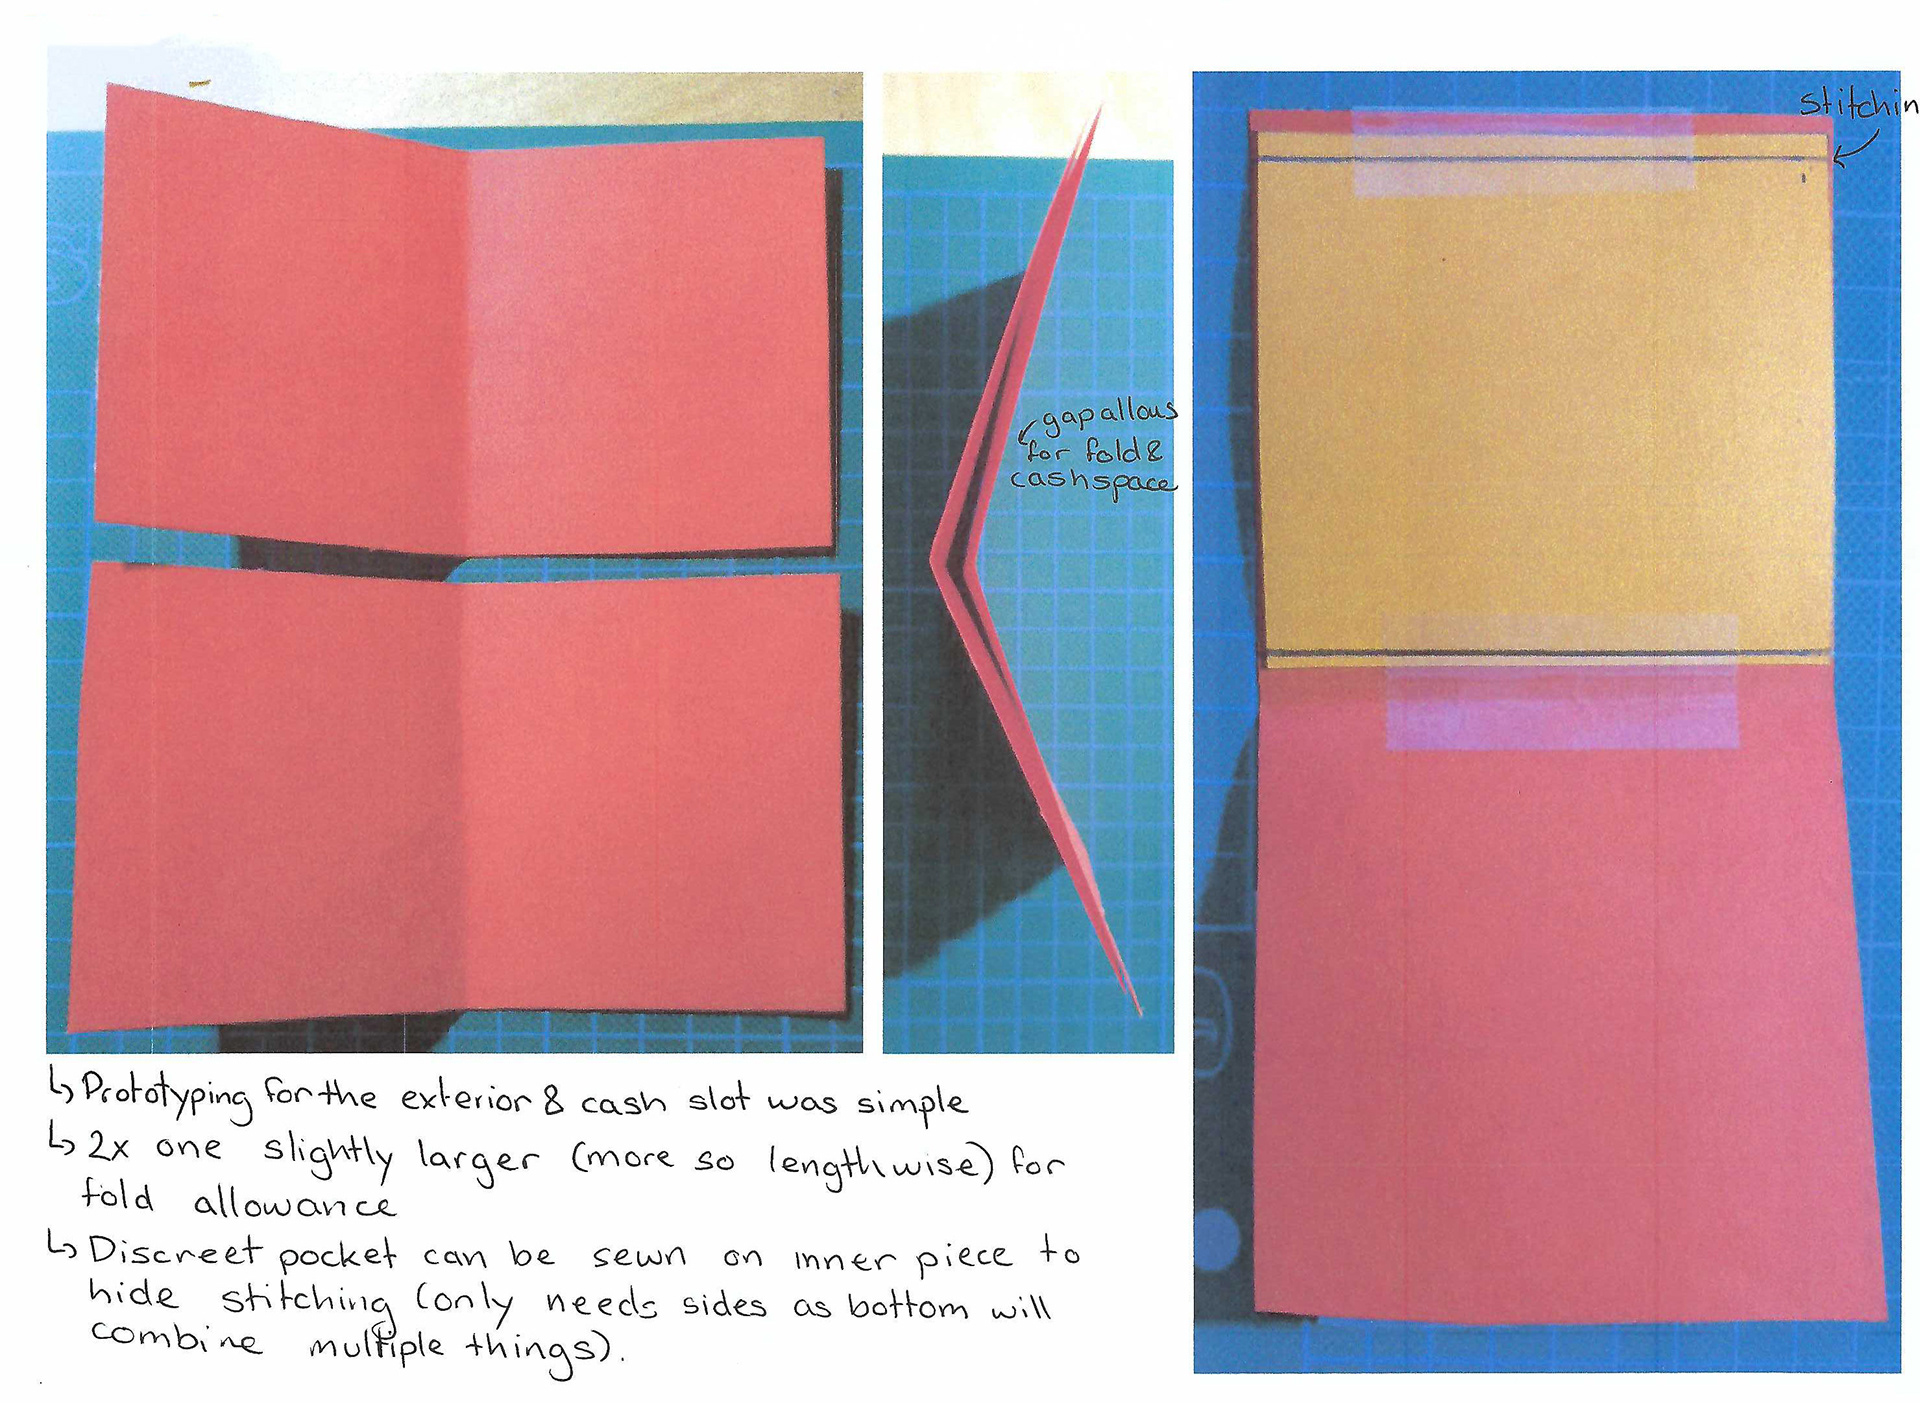 stitchin
gap allows
for fold &
cash space
↳ Prototyping for the exterior & cash slot was simple
↳ 2x one slightly larger (more so lengthwise) for
fold allowance
↳ Discreet pocket can be sewn on inner piece to
hide stitching (only needs sides as bottom will
combine multiple things).